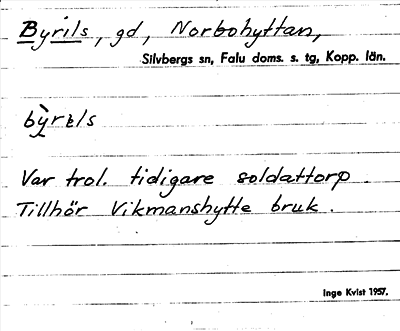 Byrils, gd, Norbohyttan,
Silvbergs sn, Falu doms. s. tg, Kopp. län.
bỳrəls
Var trol. tidigare soldattorp.
Tillhör Vikmanshytte bruk.
Inge Kvist 1957.